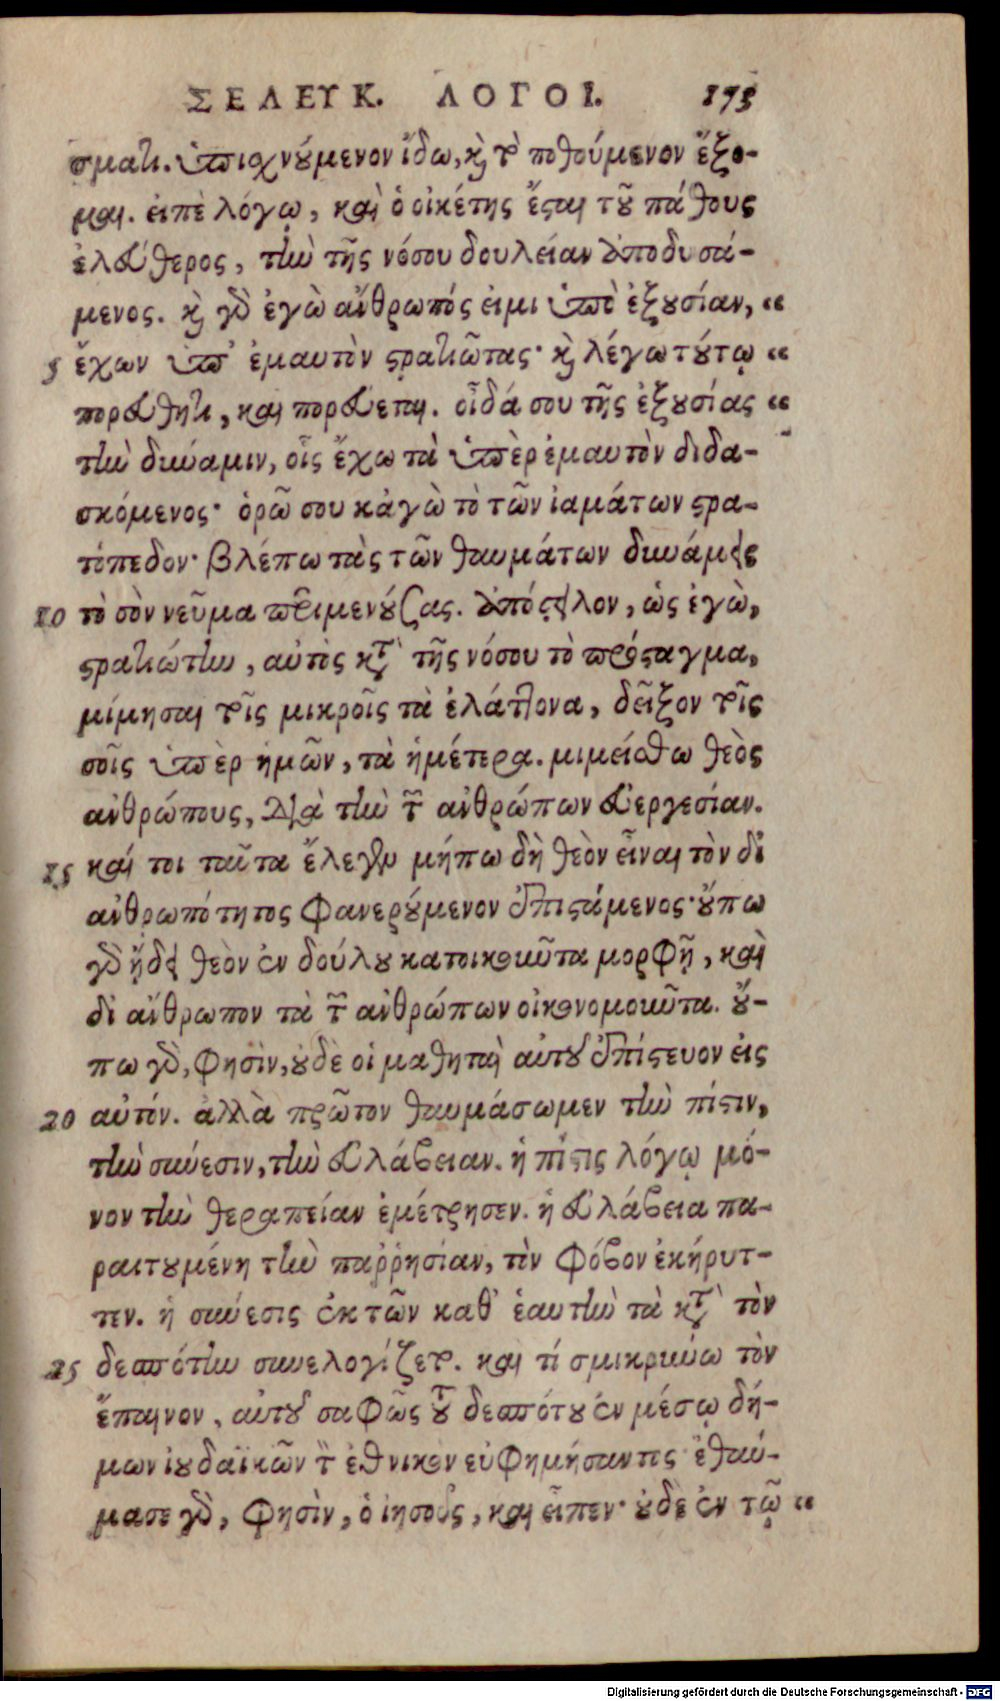 ΣΕΛΕΥΚ. ΛΟΓΟΙ. 173
σματι. ὑπισχνούμενον ἴδω, καὶ τὸ ποθούμενον ἕξο-
μαι. εἰπὲ λόγῳ, καὶ ὁ οἰκέτης ἔσται τοῦ πάθους
ἐλεύθερος, τὴν τῆς νόσου δουλείαν ἀποδυσά-
μενος. καὶ γὰρ ἐγὼ ἄνθρωπός εἰμι ὑπὸ ἐξουσίαν, “
5 ἔχων ὑπ' ἐμαυτὸν στρατιώτας· καὶ λέγω τούτῳ “
πορεύθητι, καὶ πορεύεται. οἶδά σου τῆς ἐξουσίας “
τὴν δύναμιν, οἷς ἔχω τὰ ὑπὲρ ἐμαυτὸν διδα-
σκόμενος· ὁρῶ σου κἀγὼ τὸ τῶν ἰαμάτων στρα-
τόπεδον· βλέπω τὰς τῶν θαυμάτων δυνάμεις
10 τὸ σὸν νεῦμα περιμενούσας. ἀπόστειλον, ὡς ἐγὼ,
στρατιώτην, αὐτὸς κατὰ τῆς νόσου τὸ πρόσταγμα,
μίμησαι τοῖς μικροῖς τὰ ἐλάττονα, δεῖξον τοῖς
σοῖς ὑπὲρ ἡμῶν, τὰ ἡμέτερα. μιμείσθω θεὸς
ἀνθρώπους, διὰ τὴν τῶν ἀνθρώπων εὐεργεσίαν.
15 καί τοι ταῦτα ἔλεγεν μήπω δὴ θεὸν εἶναι τὸν δι'
ἀνθρωπότητος φανερούμενον ἐπιστάμενος· οὔπω
γὰρ ᾔδει θεὸν ἐν δούλου κατοικοῦντα μορφῇ, καὶ
δι' ἄνθρωπον τὰ τῶν ἀνθρώπων οἰκονομοῦντα. οὔ-
πω γὰρ, φησὶν, οὐδὲ οἱ μαθηταὶ αὐτοῦ ἐπίστευον εἰς
20 αὐτόν. ἀλλὰ πρῶτον θαυμάσωμεν τὴν πίστιν,
τὴν σύνεσιν, τὴν εὐλάβειαν. ἡ πίστις λόγῳ μό-
νον τὴν θεραπείαν ἐμέτρησεν. ἡ εὐλάβεια πα-
ραιτουμένη τὴν παῤῥησίαν, τὸν φόβον ἐκήρυτ-
τεν. ἡ σύνεσις ἐκ τῶν καθ' ἑαυτὴν τὰ κατὰ τὸν
25 δεσπότην συνελογίζετο. καὶ τί σμικρύνω τὸν
ἔπαινον, αὐτοῦ σαφῶς τοῦ δεσπότου ἐν μέσῳ δή-
μων ἰουδαϊκῶν τὸν ἐθνικὸν εὐφημήσαντος· ἐθαύ-
μασε γὰρ, φησὶν, ὁ ἰησοῦς, καὶ εἶπεν· οὐδὲ ἐν τῷ “
Digitalisierung gefördert durch die Deutsche Forschungsgemeinschaft - DFG